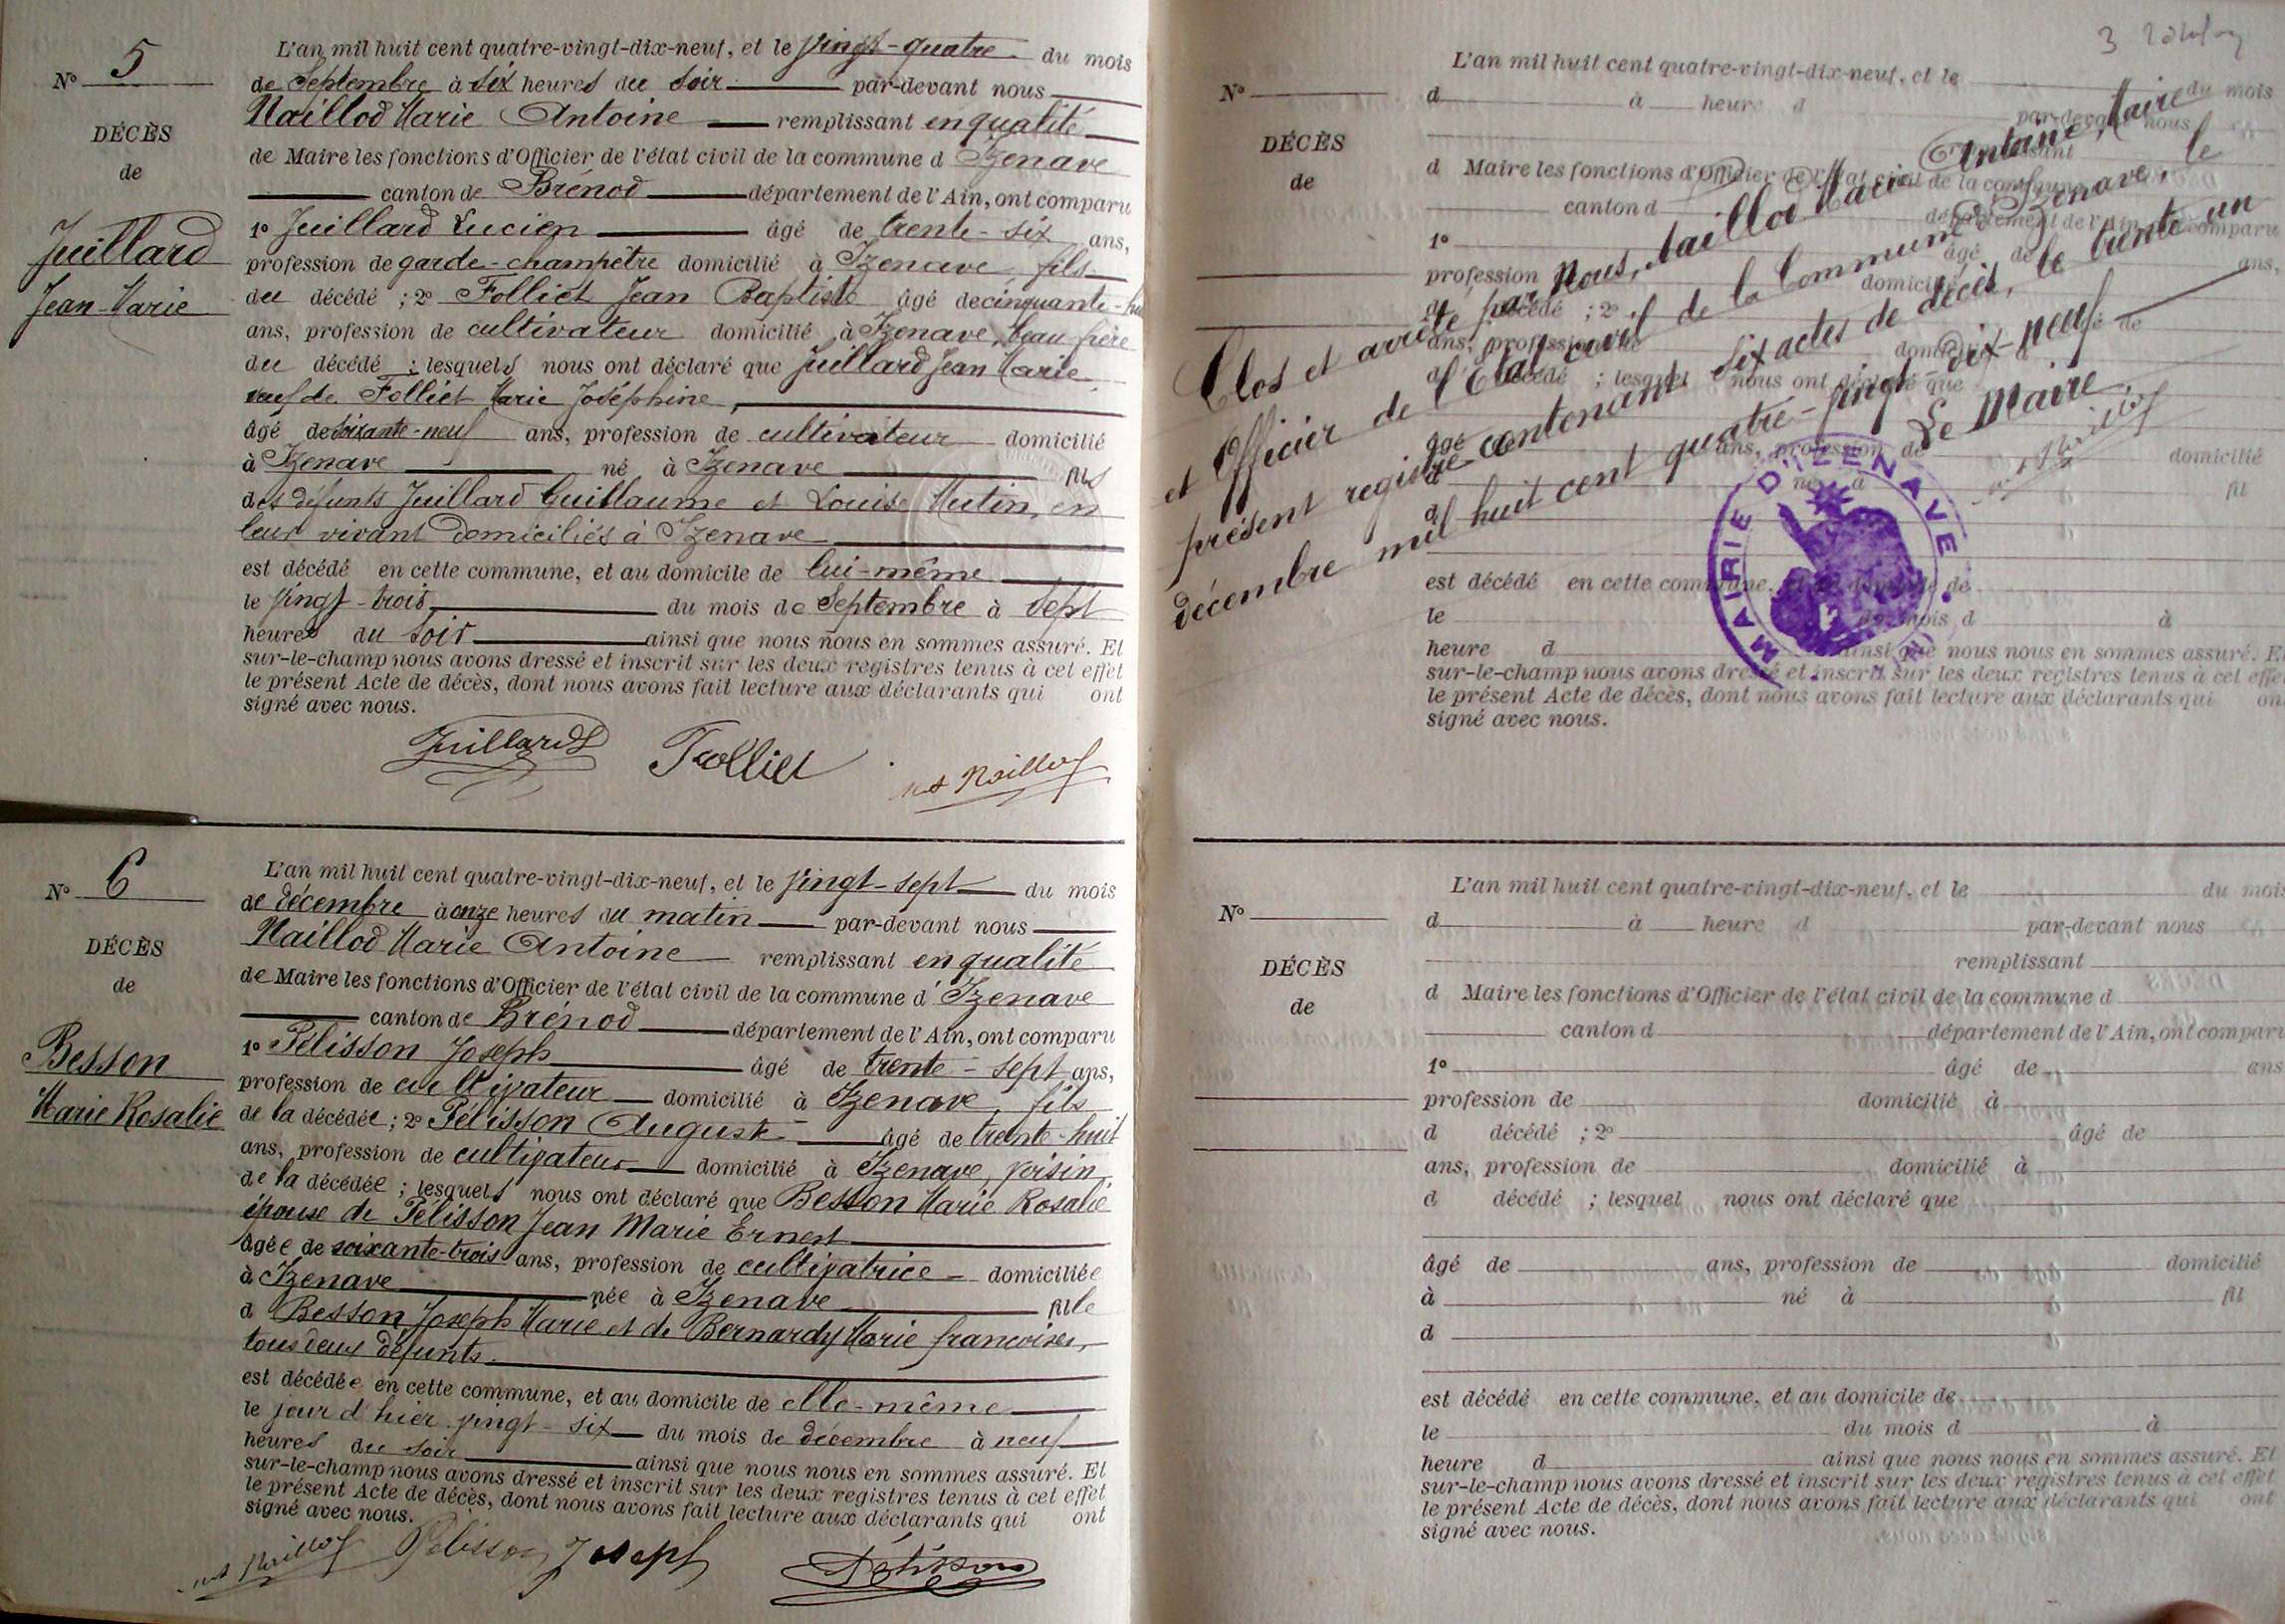 N° 5
DÉCÈS
de
Juillard
Jean-Marie
L'an mil huit cent quatre-vingt-dix-neuf, et le vingt-quatre du mois
de Septembre à six heures du soir par-devant nous
Naillod Marie Antoine remplissant en qualité
de Maire les fonctions d'Officier de l'état civil de la commune d Izenave
canton de Brénod département de l'Ain, ont comparu
1° Juillard Lucien âgé de trente-six ans,
profession de garde-champêtre domicilié à Izenave, fils
du décédé ; 2° Folliet Jean Baptiste âgé de cinquante-hu
ans, profession de cultivateur domicilié à Izenave, beau frère
du décédé ; lesquels nous ont déclaré que Juillard Jean Marie
veuf de Folliet Marie Joséphine,
âgé de soixante-neuf ans, profession de cultivateur domicilié
à Izenave né à Izenave fils
des défunts Juillard Guillaume et Louise Mutin, en
leur vivant domiciliés à Izenave
est décédé en cette commune, et au domicile de lui-même
le vingt-trois du mois de Septembre à sept
heures du soir ainsi que nous nous en sommes assuré. Et
sur-le-champ nous avons dressé et inscrit sur les deux registres tenus à cet effet
le présent Acte de décès, dont nous avons fait lecture aux déclarants qui ont
signé avec nous.
Juillard Folliet Naillod
N° 6
DÉCÈS
de
Besson
Marie Rosalie
L'an mil huit cent quatre-vingt-dix-neuf, et le vingt-sept du mois
de décembre à onze heures du matin par-devant nous
Naillod Marie Antoine remplissant en qualité
de Maire les fonctions d'Officier de l'état civil de la commune d'Izenave
canton de Brénod département de l'Ain, ont comparu
1° Pélisson Joseph âgé de trente-sept ans,
profession de cultivateur domicilié à Izenave, fils
de la décédée ; 2° Pélisson Auguste âgé de trente-huit
ans, profession de cultivateur domicilié à Izenave, voisin
de la décédée ; lesquels nous ont déclaré que Besson Marie Rosalie
épouse de Pélisson Jean Marie Ernest
âgée de soixante-trois ans, profession de cultivatrice domiciliée
à Izenave née à Izenave fille
d Besson Joseph Marie et de Bernardy Marie françoise,
tous deux défunts.
est décédée en cette commune, et au domicile de elle-même
le jour d'hier vingt-six du mois de décembre à neuf
heures du soir ainsi que nous nous en sommes assuré. Et
sur-le-champ nous avons dressé et inscrit sur les deux registres tenus à cet effet
le présent Acte de décès, dont nous avons fait lecture aux déclarants qui ont
signé avec nous.
Naillod Pélisson Joseph Pélisson
3
N°
DÉCÈS
de
L'an mil huit cent quatre-vingt-dix-neuf, et le du mois
d à heure d par-devant nous
remplissant
d Maire les fonctions d'Officier de l'état civil de la commune
canton d département de l'Ain, ont comparu
1° âgé de ans,
profession domicilié
d décédé ; 2° âgé de
ans, profession domicilié
d décédé ; lesquel nous ont déclaré que
âgé ans, profession de domicilié
à né à fil
d
est décédé en cette commune, et au domicile de
le du mois d à
heure d ainsi que nous nous en sommes assuré. Et
sur-le-champ nous avons dressé et inscrit sur les deux registres tenus à cet effet
le présent Acte de décès, dont nous avons fait lecture aux déclarants qui ont
signé avec nous.
Clos et arrêté par Nous, Naillod Marie Antoine, Maire
et Officier de l'Etat civil de la Commune d'Izenave, le
présent registre contenant six actes de décès, le trente un
décembre mil huit cent quatre-vingt-dix-neuf
Le Maire
Naillod
MAIRIE D'IZENAVE
N°
DÉCÈS
de
L'an mil huit cent quatre-vingt-dix-neuf, et le du mois
d à heure d par-devant nous
remplissant
d Maire les fonctions d'Officier de l'état civil de la commune d
canton d département de l'Ain, ont comparu
1° âgé de ans
profession de domicilié à
d décédé ; 2° âgé de
ans, profession de domicilié à
d décédé ; lesquel nous ont déclaré que
âgé de ans, profession de domicilié
à né à fil
d
est décédé en cette commune, et au domicile de
le du mois d à
heure d ainsi que nous nous en sommes assuré. Et
sur-le-champ nous avons dressé et inscrit sur les deux registres tenus à cet effet
le présent Acte de décès, dont nous avons fait lecture aux déclarants qui ont
signé avec nous.